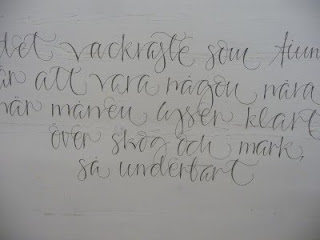 det vackraste som finn
är att vara någon nära
när månen lyser klart
över skog och mark,
så underbart